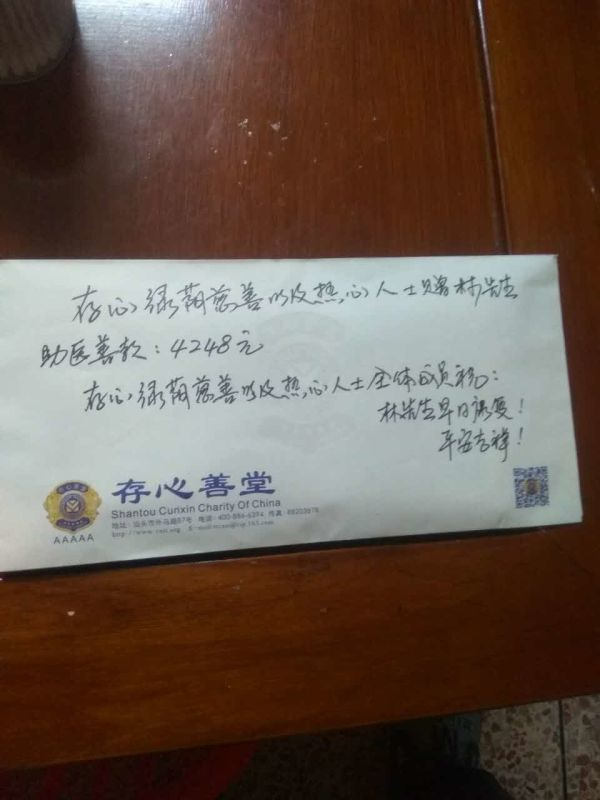 存心绿萌慈善以及热心人士赠林先生
助医善款：4248元
存心绿萌慈善以及热心人士全体成员祝：
林先生早日康复！
平安吉祥！
存心善堂
Shantou Cunxin Charity Of China
地址：汕头市外马路57号 电话：400-886-6394 传真：88203678
AAAAA